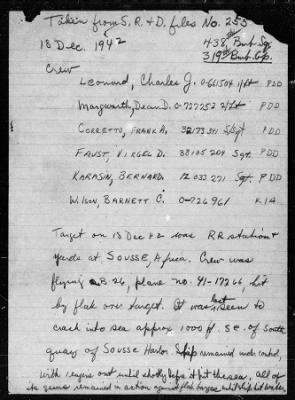 Taken from S. R. & D. files No. 253
18 Dec. 1942
438th Bmb Sq.
319th Bmb Gp.
Crew
Leonard, Charles J. 0-661504 1/Lt PDD
Margwarth, Dean D. 0-727252 2/Lt PDD
Corretto, Frank A. 32173311 S/Sgt PDD
Faust, Virgel D. 38105204 Sgt. PDD
Karasin, Bernard. 12 033 271 Sgt. PDD
Wilson, Barnett C. 0-726961 KIA
Target on 18 Dec 42 was RR station &
yards at Sousse, Africa. Crew was
flying a B-26, plane no. 41-17266, hit
by flak over target. It was last seen to
crash into sea approx 1000 ft. SE. of South
quay of Sousse Harbor Ship remained under control,
with 1 engine out until shortly before it hit the sea, all of
its guns remained in action against flak barges until ship hit water.